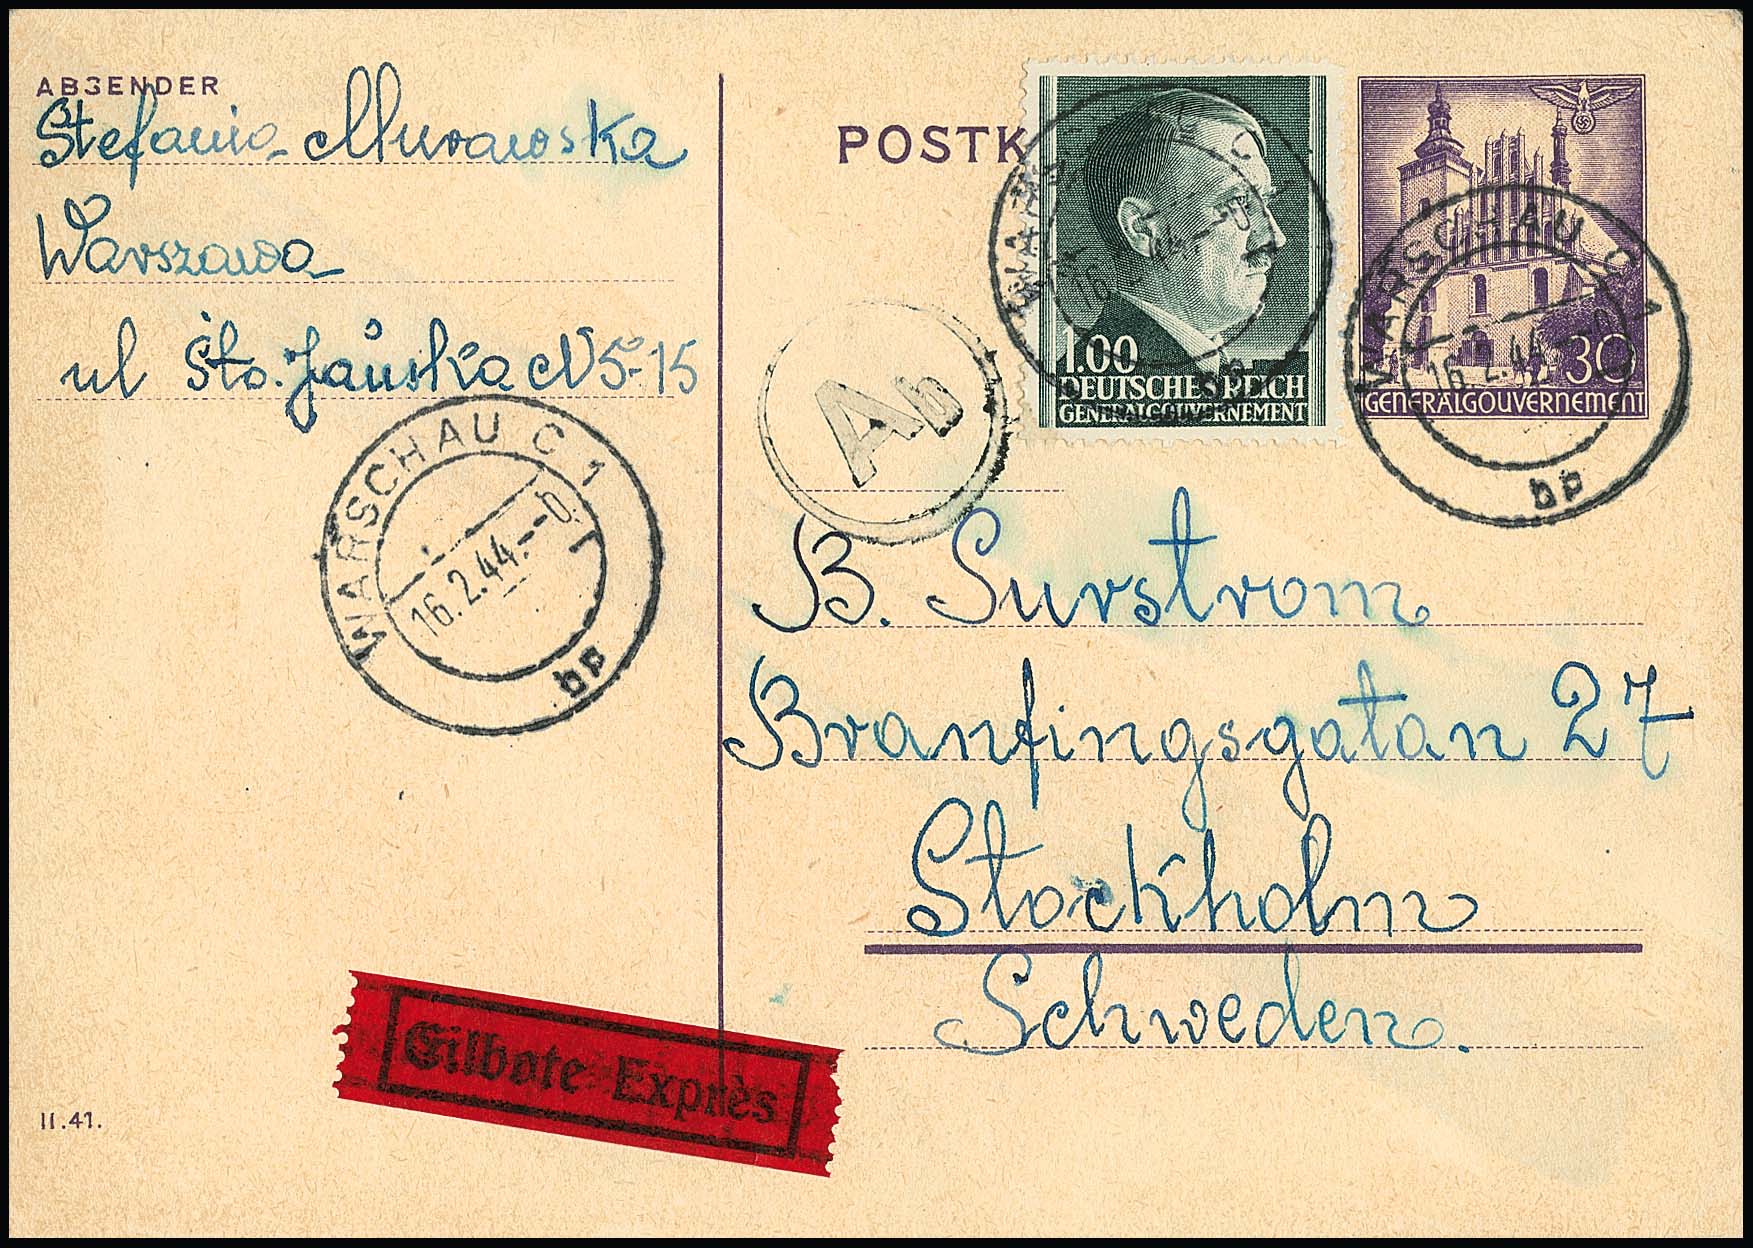 ABSENDER
Stefania Murawska
Warszawa
ul Śto. Jańska N5-15
WARSCHAU C 1
16.2.44.--b
bp
II.41.
Eilbote Exprès
POSTK
WARSCHAU C
16.2.44.--b
1.00
DEUTSCHES REICH
GENERALGOUVERNEMENT
WARSCHAU C 1
16.2.44
bp
30
GENERALGOUVERNEMENT
Ab
B. Surstrom
Branfingsgatan 27
Stockholm
Schweden.